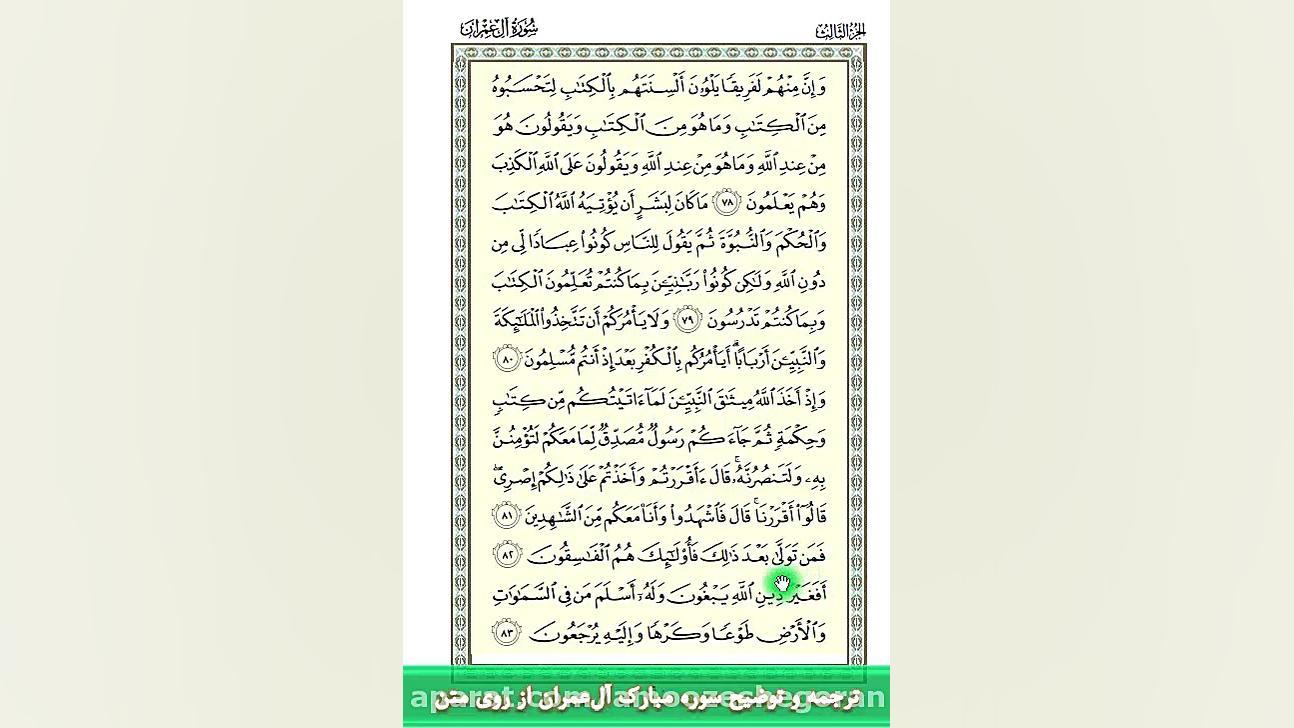 الجزء الثالث
سورة آل عمران
وَإِنَّ مِنْهُمْ لَفَرِيقًا يَلْوُۥنَ أَلْسِنَتَهُم بِٱلْكِتَٰبِ لِتَحْسَبُوهُ
مِنَ ٱلْكِتَٰبِ وَمَا هُوَ مِنَ ٱلْكِتَٰبِ وَيَقُولُونَ هُوَ
مِنْ عِندِ ٱللَّهِ وَمَا هُوَ مِنْ عِندِ ٱللَّهِ وَيَقُولُونَ عَلَى ٱللَّهِ ٱلْكَذِبَ
وَهُمْ يَعْلَمُونَ ٧٨ مَا كَانَ لِبَشَرٍ أَن يُؤْتِيَهُ ٱللَّهُ ٱلْكِتَٰبَ
وَٱلْحُكْمَ وَٱلنُّبُوَّةَ ثُمَّ يَقُولَ لِلنَّاسِ كُونُوا۟ عِبَادًا لِّى مِن
دُونِ ٱللَّهِ وَلَٰكِن كُونُوا۟ رَبَّٰنِيِّۦنَ بِمَا كُنتُمْ تُعَلِّمُونَ ٱلْكِتَٰبَ
وَبِمَا كُنتُمْ تَدْرُسُونَ ٧٩ وَلَا يَأْمُرَكُمْ أَن تَتَّخِذُوا۟ ٱلْمَلَٰٓئِكَةَ
وَٱلنَّبِيِّۦنَ أَرْبَابًا ۗ أَيَأْمُرُكُم بِٱلْكُفْرِ بَعْدَ إِذْ أَنتُم مُّسْلِمُونَ ٨٠
وَإِذْ أَخَذَ ٱللَّهُ مِيثَٰقَ ٱلنَّبِيِّۦنَ لَمَآ ءَاتَيْتُكُم مِّن كِتَٰبٍ
وَحِكْمَةٍ ثُمَّ جَآءَكُمْ رَسُولٌ مُّصَدِّقٌ لِّمَا مَعَكُمْ لَتُؤْمِنُنَّ
بِهِۦ وَلَتَنصُرُنَّهُۥ ۚ قَالَ ءَأَقْرَرْتُمْ وَأَخَذْتُمْ عَلَىٰ ذَٰلِكُمْ إِصْرِى ۖ
قَالُوٓا۟ أَقْرَرْنَا ۚ قَالَ فَٱشْهَدُوا۟ وَأَنَا۠ مَعَكُم مِّنَ ٱلشَّٰهِدِينَ ٨١
فَمَن تَوَلَّىٰ بَعْدَ ذَٰلِكَ فَأُو۟لَٰٓئِكَ هُمُ ٱلْفَٰسِقُونَ ٨٢
أَفَغَيْرَ دِينِ ٱللَّهِ يَبْغُونَ وَلَهُۥٓ أَسْلَمَ مَن فِى ٱلسَّمَٰوَٰتِ
وَٱلْأَرْضِ طَوْعًا وَكَرْهًا وَإِلَيْهِ يُرْجَعُونَ ٨٣
ترجمه و توضیح سوره مبارک آل‌عمران از روی متن